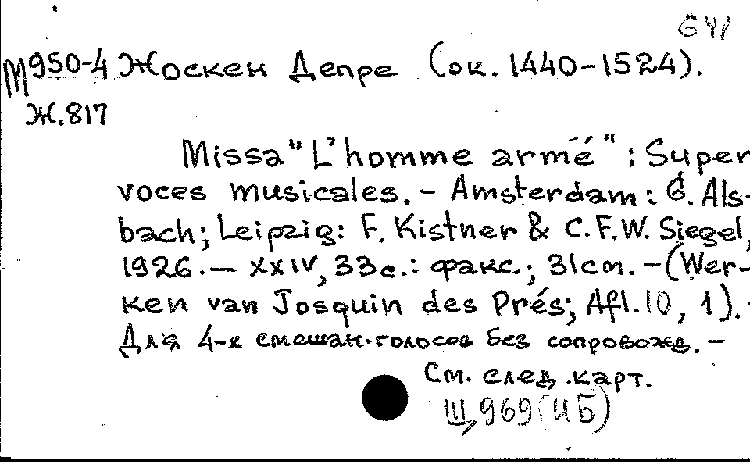 G41
М950-4 Жоскен Депре (ок. 1440-1524).
Ж.817
Missa "L'homme armé" : Super
voces musicales. - Amsterdam : G. Als-
bach; Leipzig: F. Kistner & C.F.W. Siegel,
1926. - XXIV, 33с.: факс.; 31cm. - (Wer-
ken van Josquin des Prés; Afl.10, 1).
Для 4-х смешан. голосов без сопровожд. -
См. след. карт.
Щ969(ИБ)